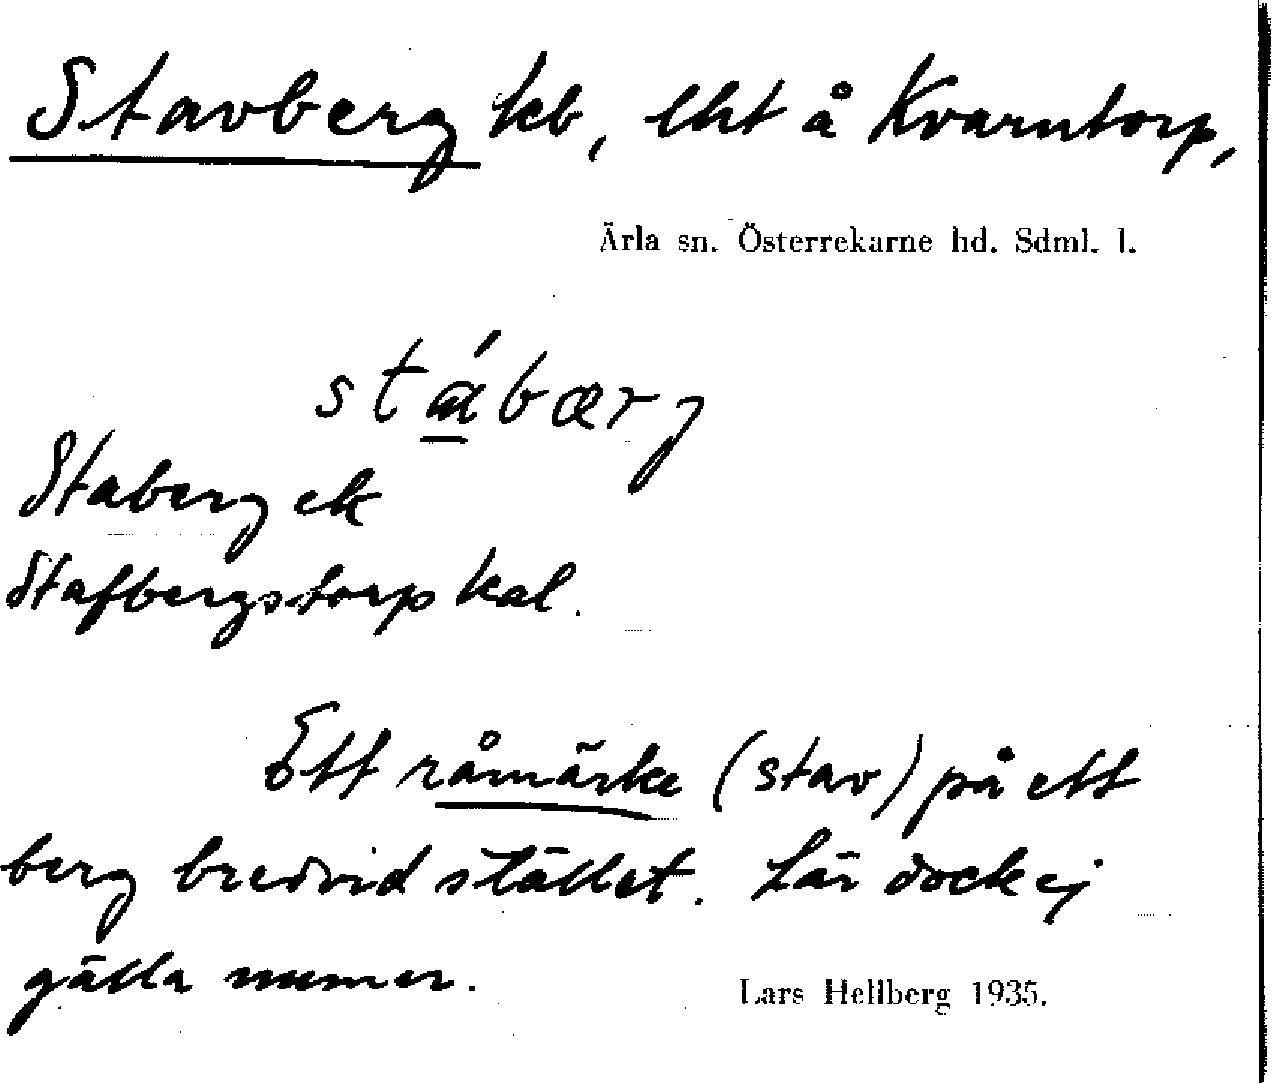 Stavberg lht å Kvarntorp,
Ärla sn. Österrekarne hd. Sdml. l.
stábærj
Staberg ek
Stafbergstorp kal.
Ett råmärke (stav) på ett
berg bredvid stället. Lär dock ej
gälla numer.
Lars Hellberg 1935.